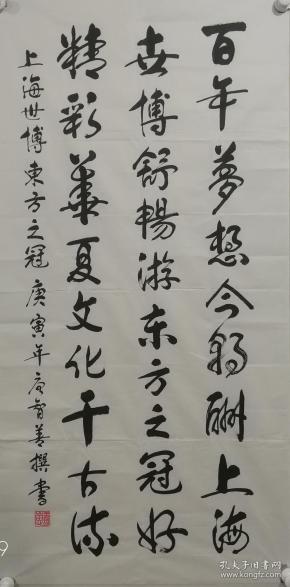 百年夢想今得酬上海
世博舒暢游东方之冠好
精彩華夏文化千古流
上海世博東方之冠庚寅年唐智善撰書
孔夫子旧书网